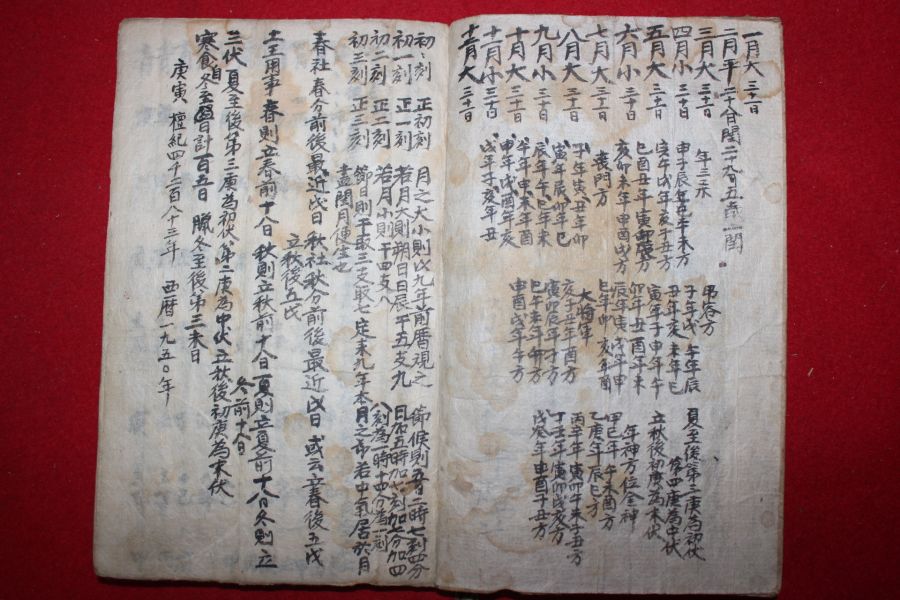 一月大 三十一日
二月平 二十八日 閏二十九日 五歲一閏
三月大 三十一日
四月小 三十日
五月大 三十一日
六月小 三十日
七月大 三十一日
八月大 三十一日
九月小 三十日
十月大 三十一日
十一月小 三十日
十二月大 三十一日
年三杀
申子辰年巳午未方
寅午戌年亥子丑方
巳酉丑年寅卯辰方
亥卯未年申酉戌方
喪門方
子年寅 丑年卯
寅年辰 卯年巳
辰年午 巳年未
午年申 未年酉
申年戌 酉年亥
戌年子 亥年丑
吊客方
子年戌 午年辰
丑年亥 未年巳
寅年子 申年午
卯年丑 酉年未
辰年寅 戌年申
巳年卯 亥年酉
大將軍
亥子丑年酉方
寅卯辰年子方
巳午未年卯方
申酉戌年午方
夏至後第三庚為初伏
第四庚為中伏
立秋後初庚為末伏
年神方位金神
甲己年 午未酉方
乙庚年 辰巳方
丙辛年 寅卯午未子丑方
丁壬年 寅卯戌亥方
戊癸年 申酉子丑方
初初刻 正初刻
初一刻 正一刻
初二刻 正二刻
初三刻 正三刻
月之大小則戊九年前曆視之
若月大則朔日日辰干五支九
若月小則干四支八
節日則干取三支取七定末九年本月之節若中氣居於月
盡閏月便生也
節候則五日二時七刻四分
日加五時加七刻加七分加四
八刻為一時十四分為一刻
春社 春分前後最近戊日 秋社 秋分前後最近戊日 或云立春後五戊
立秋後五戊
土王用事 春則立春前十八日 秋則立秋前十八日 夏則立夏前十八日 冬則立
冬前十八日
三伏 夏至後第三庚為初伏 第二庚為中伏 立秋後初庚為末伏
寒食 自冬至日計一百五日 臘 冬至後第三未日
庚寅 檀紀四千二百八十三年 西曆一九五〇年